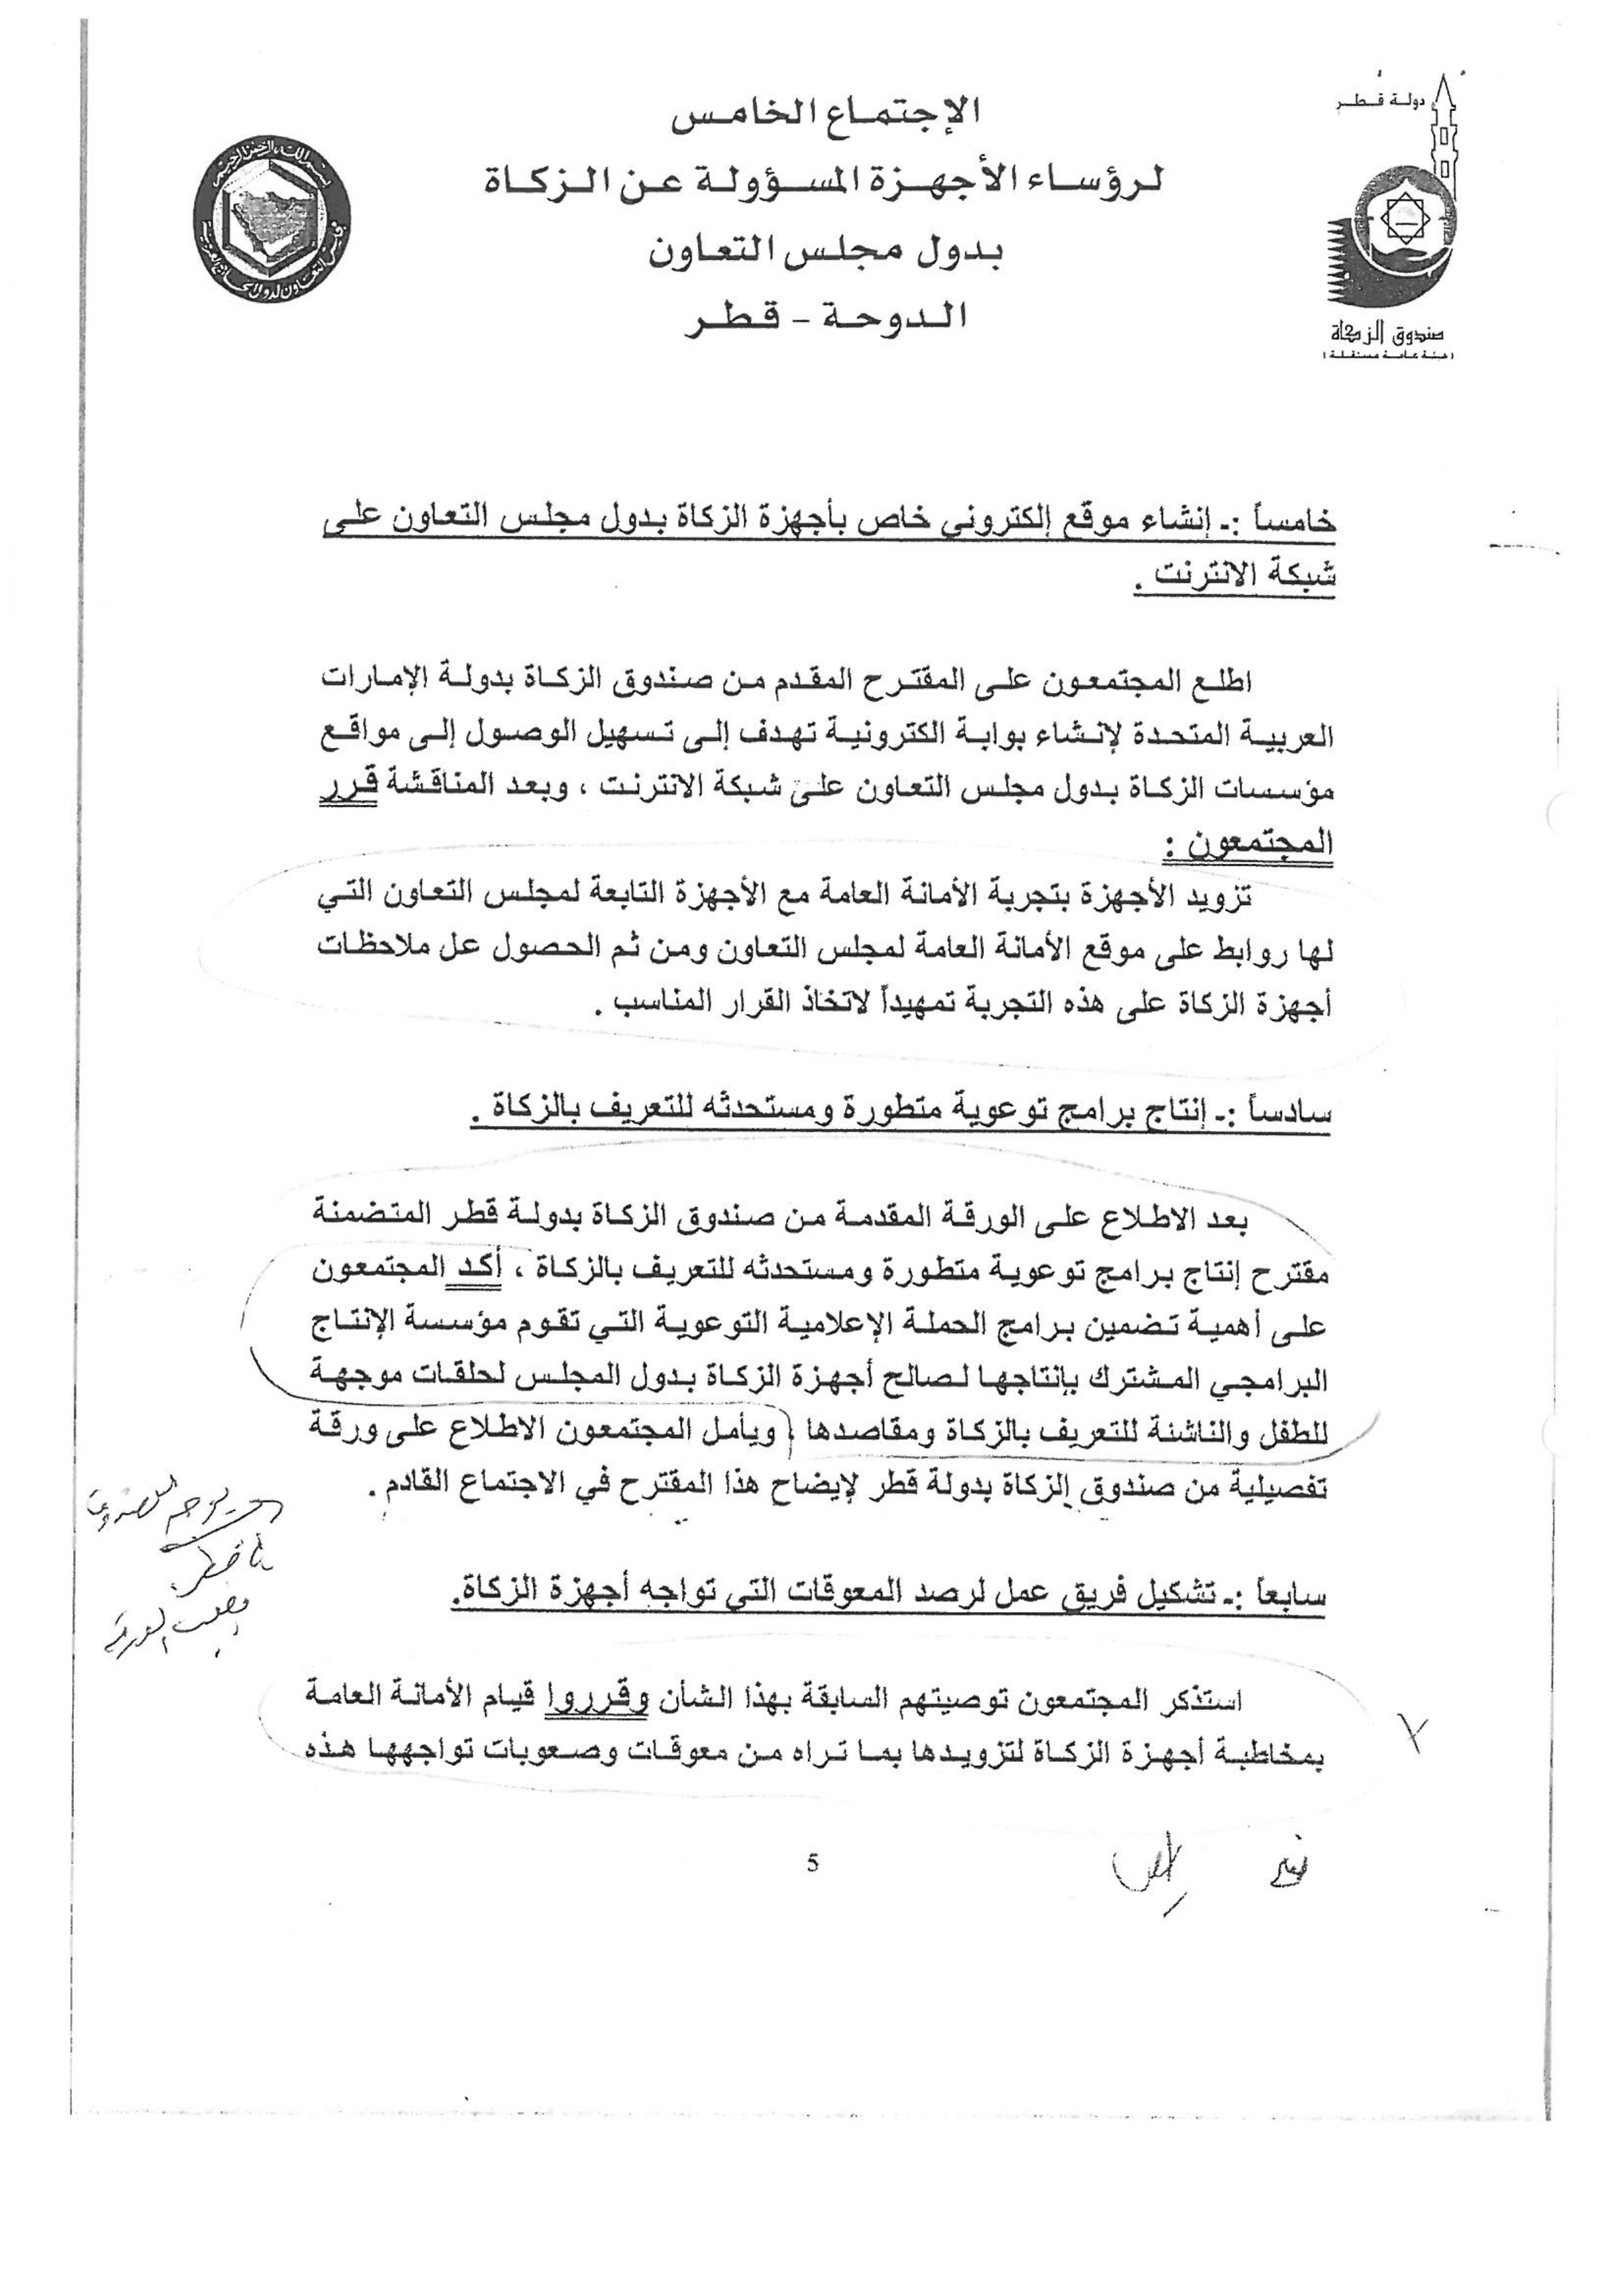 دولة قطر
صندوق الزكاة
(هيئة عامة مستقلة)
الإجتماع الخامس
لرؤساء الأجهزة المسؤولة عن الزكاة
بدول مجلس التعاون
الدوحة - قطر
خامساً :- إنشاء موقع إلكتروني خاص بأجهزة الزكاة بدول مجلس التعاون على
شبكة الانترنت .
اطلع المجتمعون على المقترح المقدم من صندوق الزكاة بدولة الإمارات
العربية المتحدة لإنشاء بوابة الكترونية تهدف إلى تسهيل الوصول إلى مواقع
مؤسسات الزكاة بدول مجلس التعاون على شبكة الانترنت ، وبعد المناقشة قرر
المجتمعون :
تزويد الأجهزة بتجربة الأمانة العامة مع الأجهزة التابعة لمجلس التعاون التي
لها روابط على موقع الأمانة العامة لمجلس التعاون ومن ثم الحصول عل ملاحظات
أجهزة الزكاة على هذه التجربة تمهيداً لاتخاذ القرار المناسب .
سادساً :- إنتاج برامج توعوية متطورة ومستحدثه للتعريف بالزكاة .
بعد الاطلاع على الورقة المقدمة من صندوق الزكاة بدولة قطر المتضمنة
مقترح إنتاج برامج توعوية متطورة ومستحدثه للتعريف بالزكاة ، أكد المجتمعون
على أهمية تضمين برامج الحملة الإعلامية التوعوية التي تقوم مؤسسة الإنتاج
البرامجي المشترك بإنتاجها لصالح أجهزة الزكاة بدول المجلس لحلقات موجهة
للطفل والناشئة للتعريف بالزكاة ومقاصدها ، ويأمل المجتمعون الاطلاع على ورقة
تفصيلية من صندوق الزكاة بدولة قطر لإيضاح هذا المقترح في الاجتماع القادم .
سابعاً :- تشكيل فريق عمل لرصد المعوقات التي تواجه أجهزة الزكاة.
استذكر المجتمعون توصيتهم السابقة بهذا الشأن وقرروا قيام الأمانة العامة
بمخاطبة أجهزة الزكاة لتزويدها بما تراه من معوقات وصعوبات تواجهها هذه
5